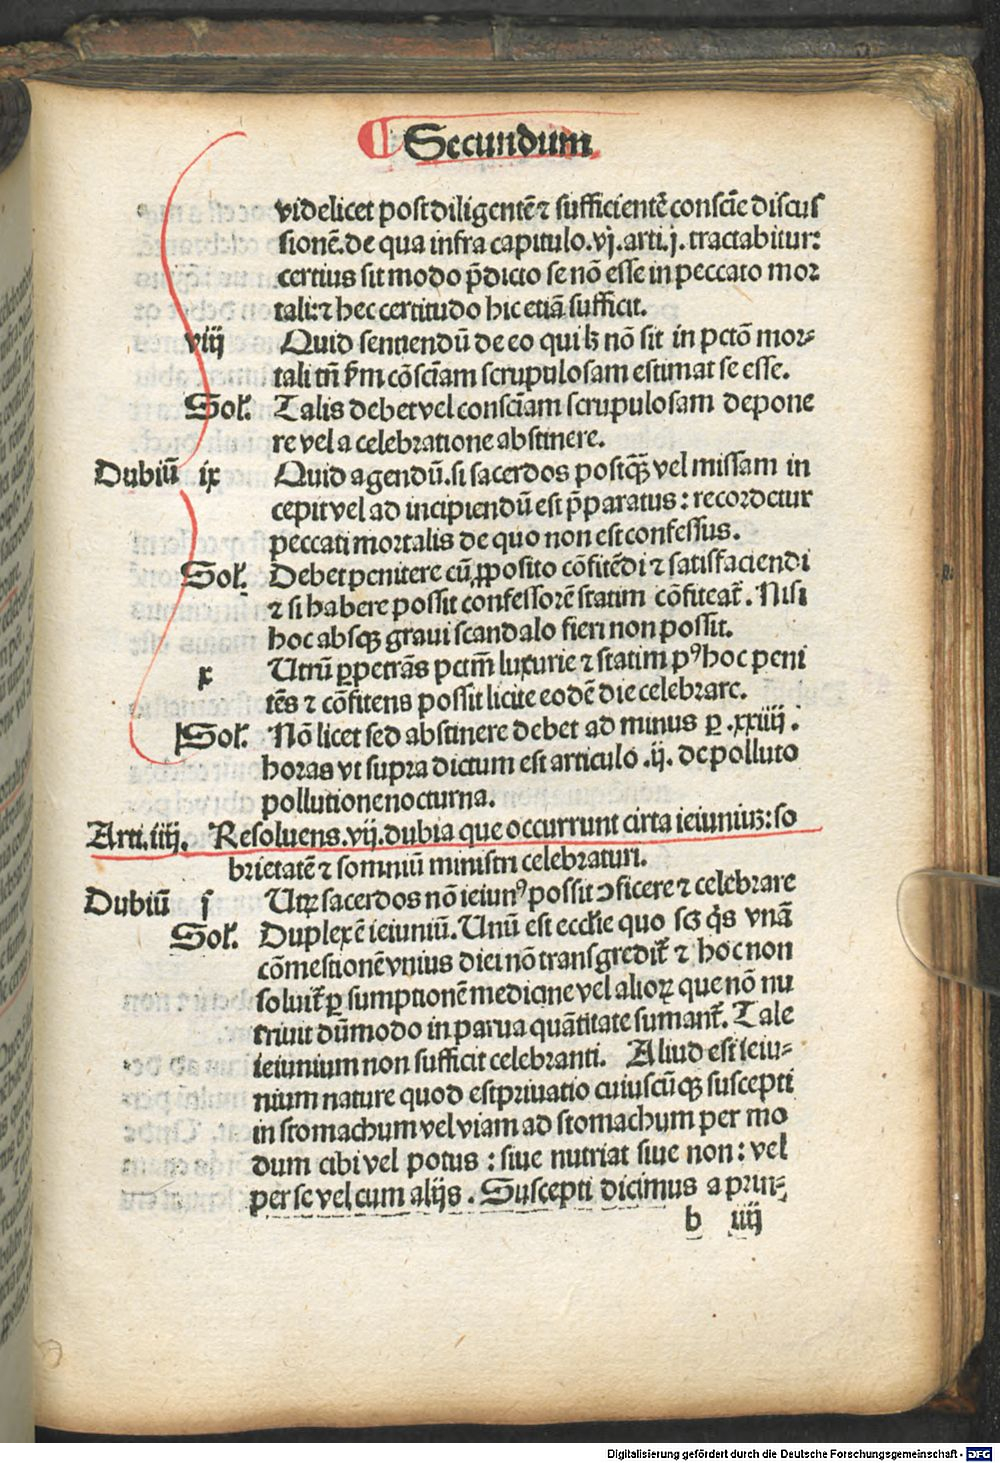 Secundum
videlicet post diligentē ⁊ sufficientē consciē discus
sionē. de qua infra capitulo .vj. arti. j. tractabitur:
certius sit modo p̄dicto se nō esse in peccato mor
tali: ⁊ hec certitudo hic etiā sufficit.
viij Quid sentiendū de eo qui lꝫ nō sit in pctō mor-
tali tñ ẜm cōsciam scrupulosam estimat se esse.
Sol. Talis debet vel consciam scrupulosam depone
re vel a celebratione abstinere.
Dubiū ix Quid agendū. si sacerdos postꝙ̄ vel missam in
cepit vel ad incipiendū est p̄paratus: recordetur
peccati mortalis de quo non est confessus.
Sol. Debet penitere cū ꝓposito cōfitēdi ⁊ satisfaciendi
⁊ si habere possit confessorē statim cōfiteat̄. Nisi
hoc absqꝫ graui scandalo fieri non possit.
x Utrū ꝑpetrās pctm̄ luxurie ⁊ statim pꝰ hoc peni
tēs ⁊ cōfitens possit licite eodē die celebrare.
Sol. Nō licet sed abstinere debet ad minus ꝑ .xxiiij.
horas vt supra dictum est articulo .ij. de polluto
pollutione nocturna.
Arti. iiij. Resoluens .vij. dubia que occurrunt circa ieiuniuꝫ: so
brietatē ⁊ somniū ministri celebraturi.
Dubiū j Utrꝫ sacerdos nō ieiunꝰ possit ꝯficere ⁊ celebrare
Sol. Duplex ē ieiuniū. Unū est eccl̄ie quo scꝫ q̇s vnā
cōmestionē vnius diei nō transgredit̄ ⁊ hoc non
soluit̄ ꝑ sumptionē medicine vel alioꝝ que nō nu
triunt dūmodo in parua quātitate sumant̄. Tale
ieiunium non sufficit celebranti. Aliud est ieiu-
nium nature quod est priuatio cuiuscūqꝫ suscepti
in stomachum vel viam ad stomachum per mo
dum cibi vel potus: siue nutriat siue non: vel
per se vel cum alijs. Suscepti dicimus a prin-
b iiij
Digitalisierung gefördert durch die Deutsche Forschungsgemeinschaft - DFG